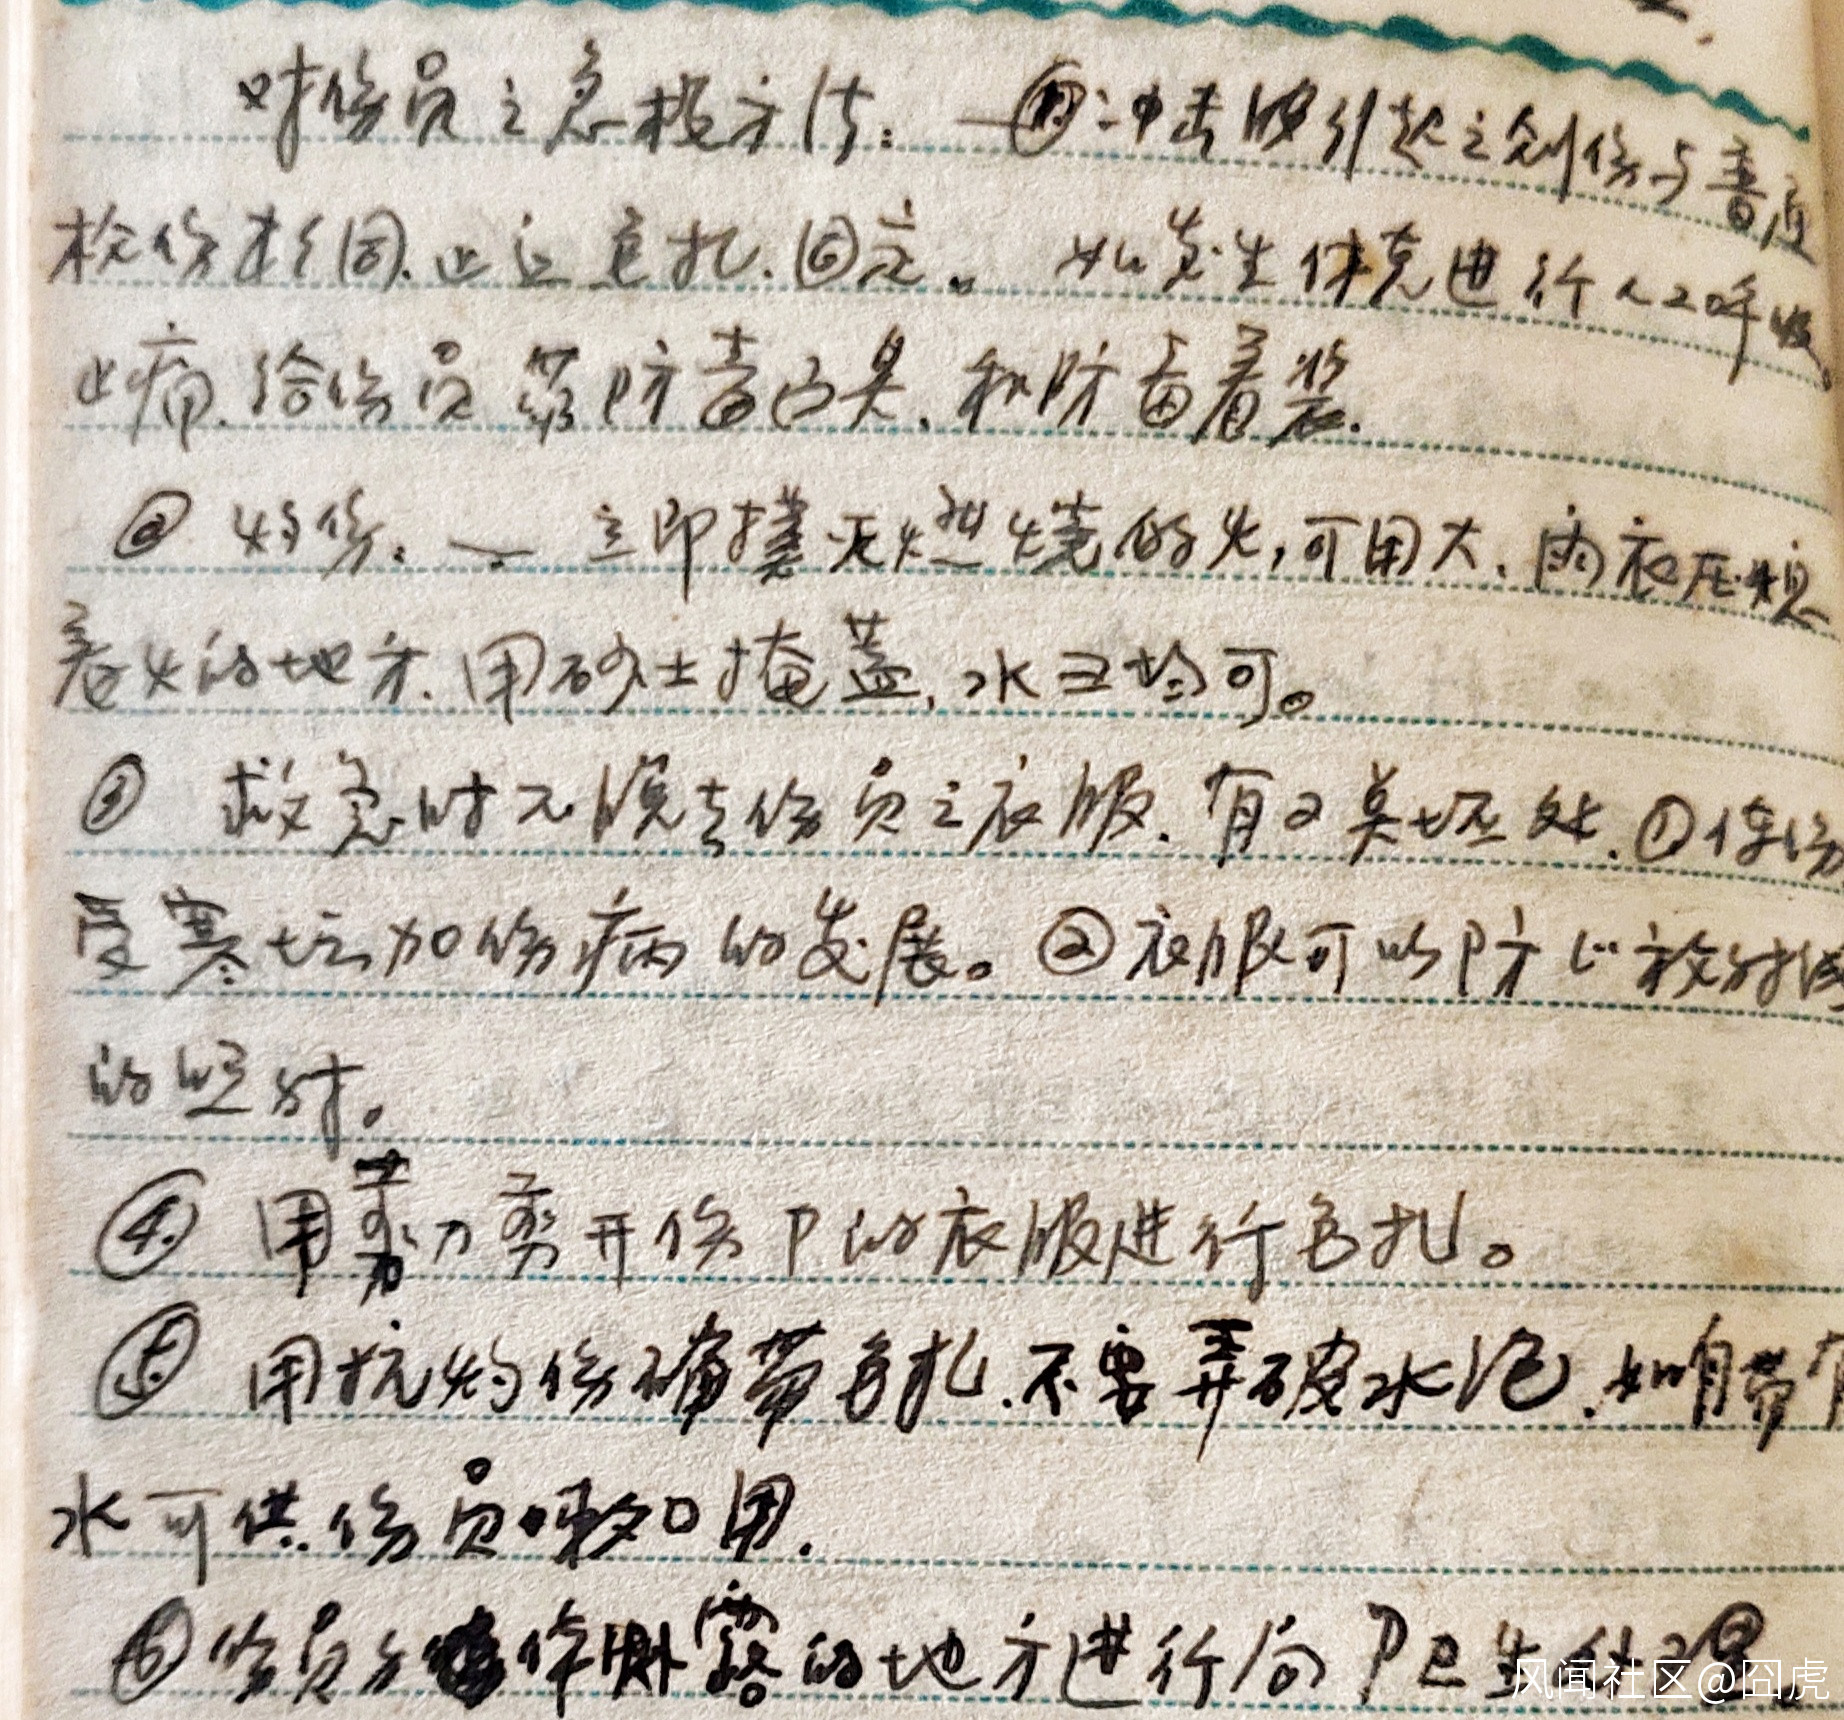 对伤员之急救方法：—①冲击波引起之创伤与普通
枪伤相同.止血包扎.固定。如发生休克进行人工呼吸
止痛.给伤员带防毒面具.和防毒着装.
② 灼伤：— 立即扑灭燃烧的火,可用大.雨衣压熄
着火的地方.用砂土掩盖,水三均可。
③ 救急时不脱去伤员之衣服.有2关坏处.①使伤
受寒增加伤病的发展。②衣服可以防止放射线
的照射。
④ 用剪刀剪开伤卩的衣服进行包扎。
⑤ 用抗灼伤绷带包扎.不要弄破水泡.如有带有
水可供伤员漱口用.
⑥伤员身体暴露的地方进行局卩卫生处理
风闻社区@囧虎